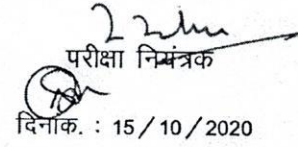 परीक्षा नियंत्रक
दिनांक. : 15/10/2020